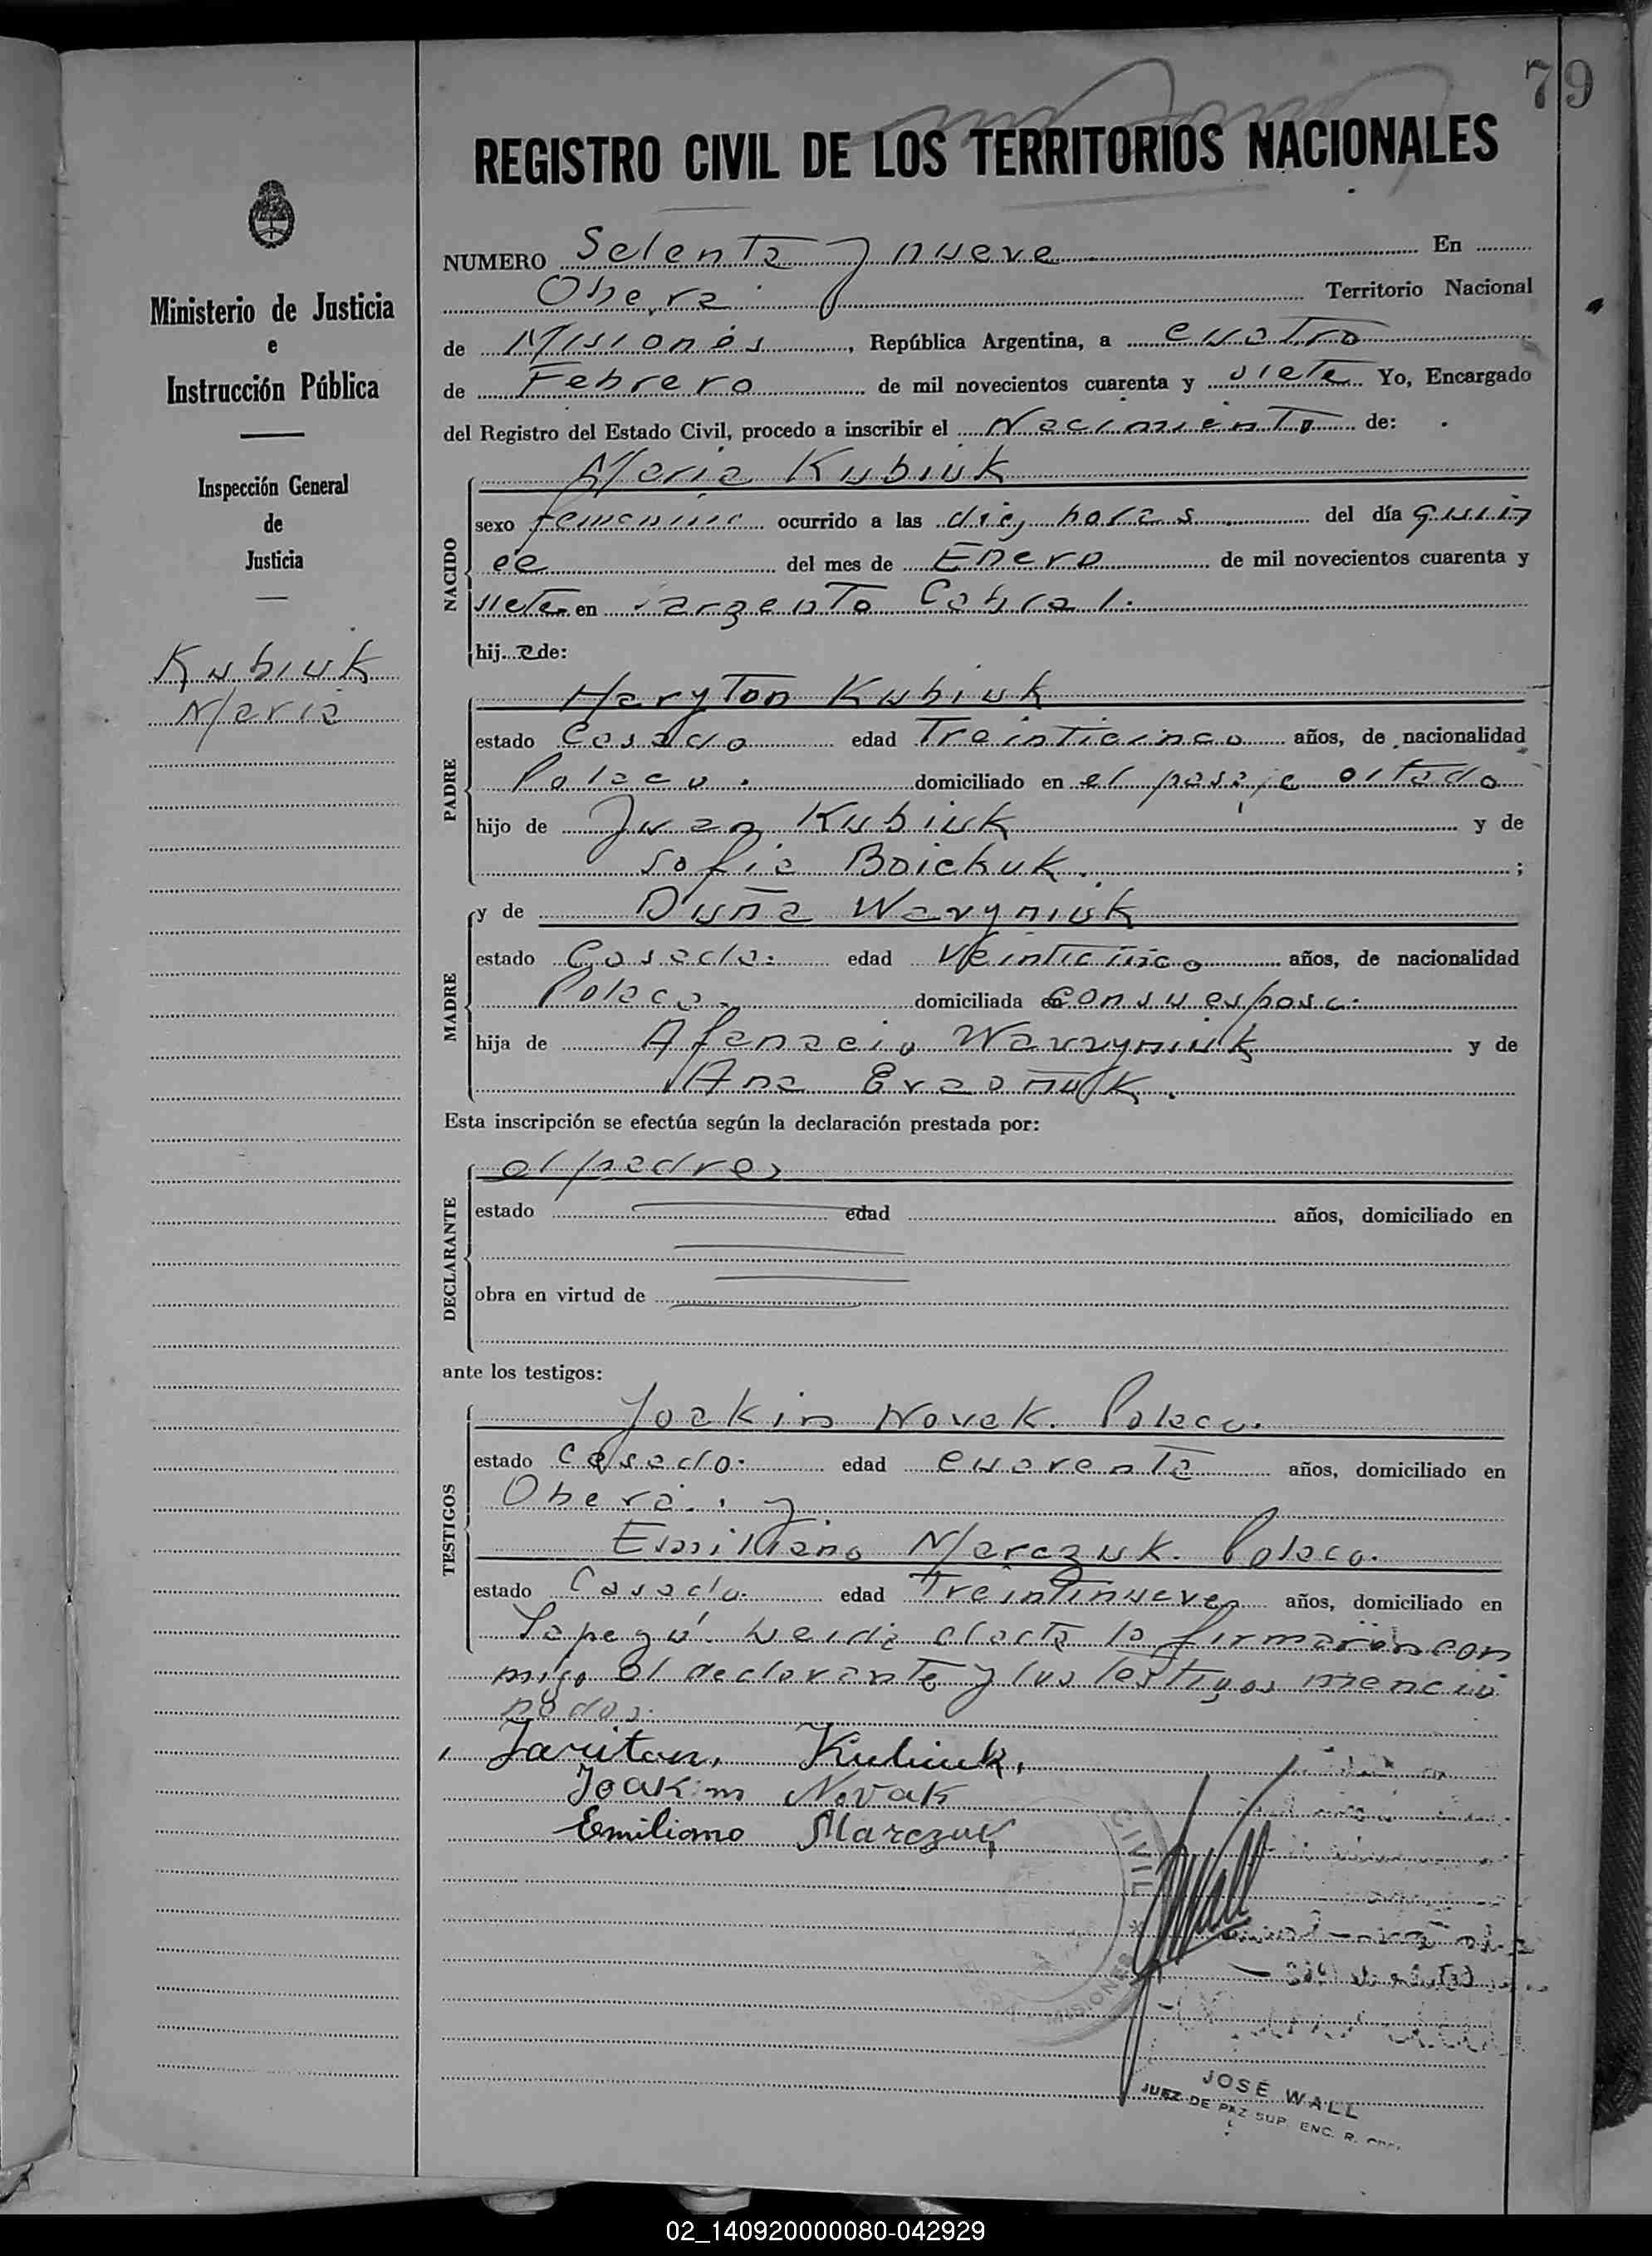 79
REGISTRO CIVIL DE LOS TERRITORIOS NACIONALES
Ministerio de Justicia
e
Instrucción Pública
Inspección General
de
Justicia
Kubiuk
Maria
NUMERO Setenta y nueve En
Oberá Territorio Nacional
de Misiones, República Argentina, a cuatro
de Febrero de mil novecientos cuarenta y siete Yo, Encargado
del Registro del Estado Civil, procedo a inscribir el Nacimiento de:
Maria Kubiuk
NACIDO
sexo femenino ocurrido a las diez horas del día quin
ce del mes de Enero de mil novecientos cuarenta y
siete en Sargento Cabral.
hij a de:
Haryton Kubiuk
PADRE
estado Casado edad Treinticinco años, de nacionalidad
Polaco. domiciliado en el pasaje citado
hijo de Juan Kubiuk y de
Sofia Boichuk. ;
y de Duña Wavyniuk
MADRE
estado Casada. edad Veinticinco años, de nacionalidad
Polaca. domiciliada en con su esposo.
hija de Afanacio y de
Ana
Esta inscripción se efectúa según la declaración prestada por:
el padre
DECLARANTE
estado edad años, domiciliado en
obra en virtud de
ante los testigos:
Joakin Novak. Polaco.
TESTIGOS
estado Casado. edad cuarenta años, domiciliado en
Oberá. y
Emiliano Marczuk. Polaco.
estado Casado. edad Treintinueve años, domiciliado en
Yapeyú. Leida el acta la firmaron con
migo el declarante y los testigos mencio
nados.
Jariton, Kubiuk,
Joakim Novak
Emiliano Marczuk
CIVIL *
MISIONES
JWall
JOSÉ WALL
JUEZ DE PAZ SUP. ENC. R.
02_140920000080-042929